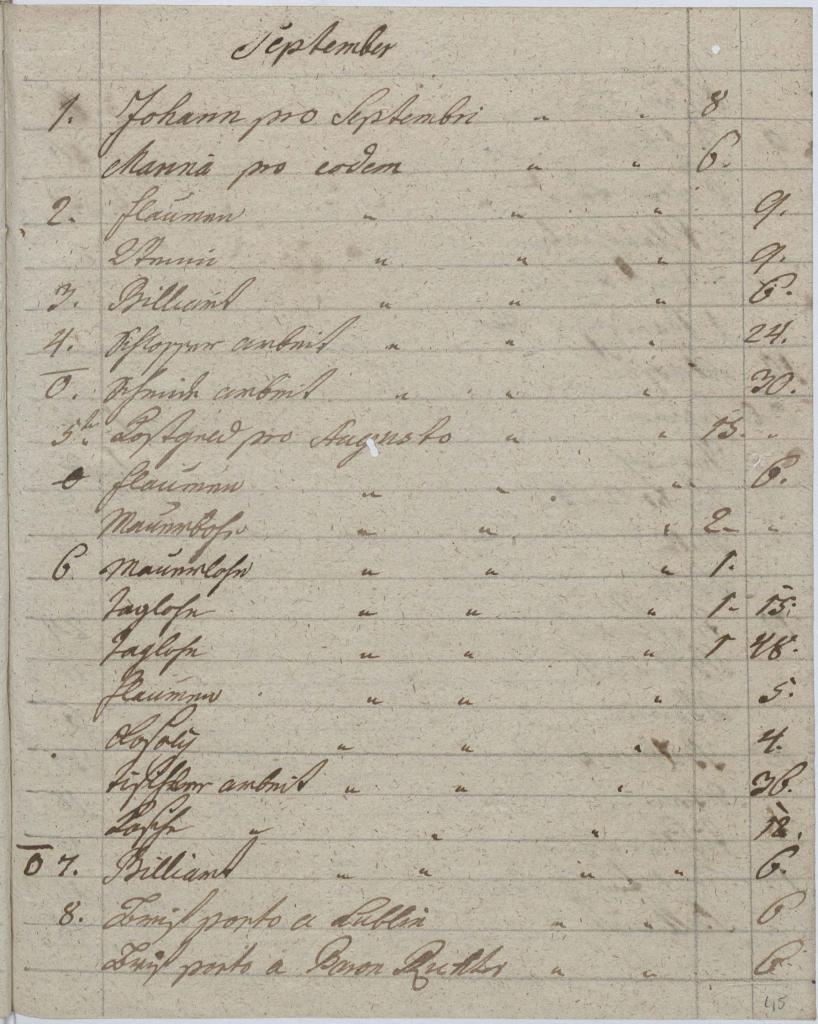 September
1. Johann pro Septembri " " 8
Manna pro eodem " " 6.
2. flaumen " " " 9.
" " " 9.
3. Billiart " " " 6.
4. Schlosser arbeit " " " 24.
0. Schmidt arbeit " " " 30.
5t. Kostgeld pro Augusto " " 15. "
0 flaumen " " " 6.
Mauerlohn " " " 2- "
6 Mauerlohn " " " 1.
Taglohn " " " 1- 15.
Taglohn " " " 1 48.
flaumen " " " 5.
Rosoly " " " 4.
tischler arbeit " " " 36.
" " " 12.
0 7. Billiart " " " " 6.
8. Brief porto a Lublin " " 6
Brief porto a Baron Richter " " 6.
45